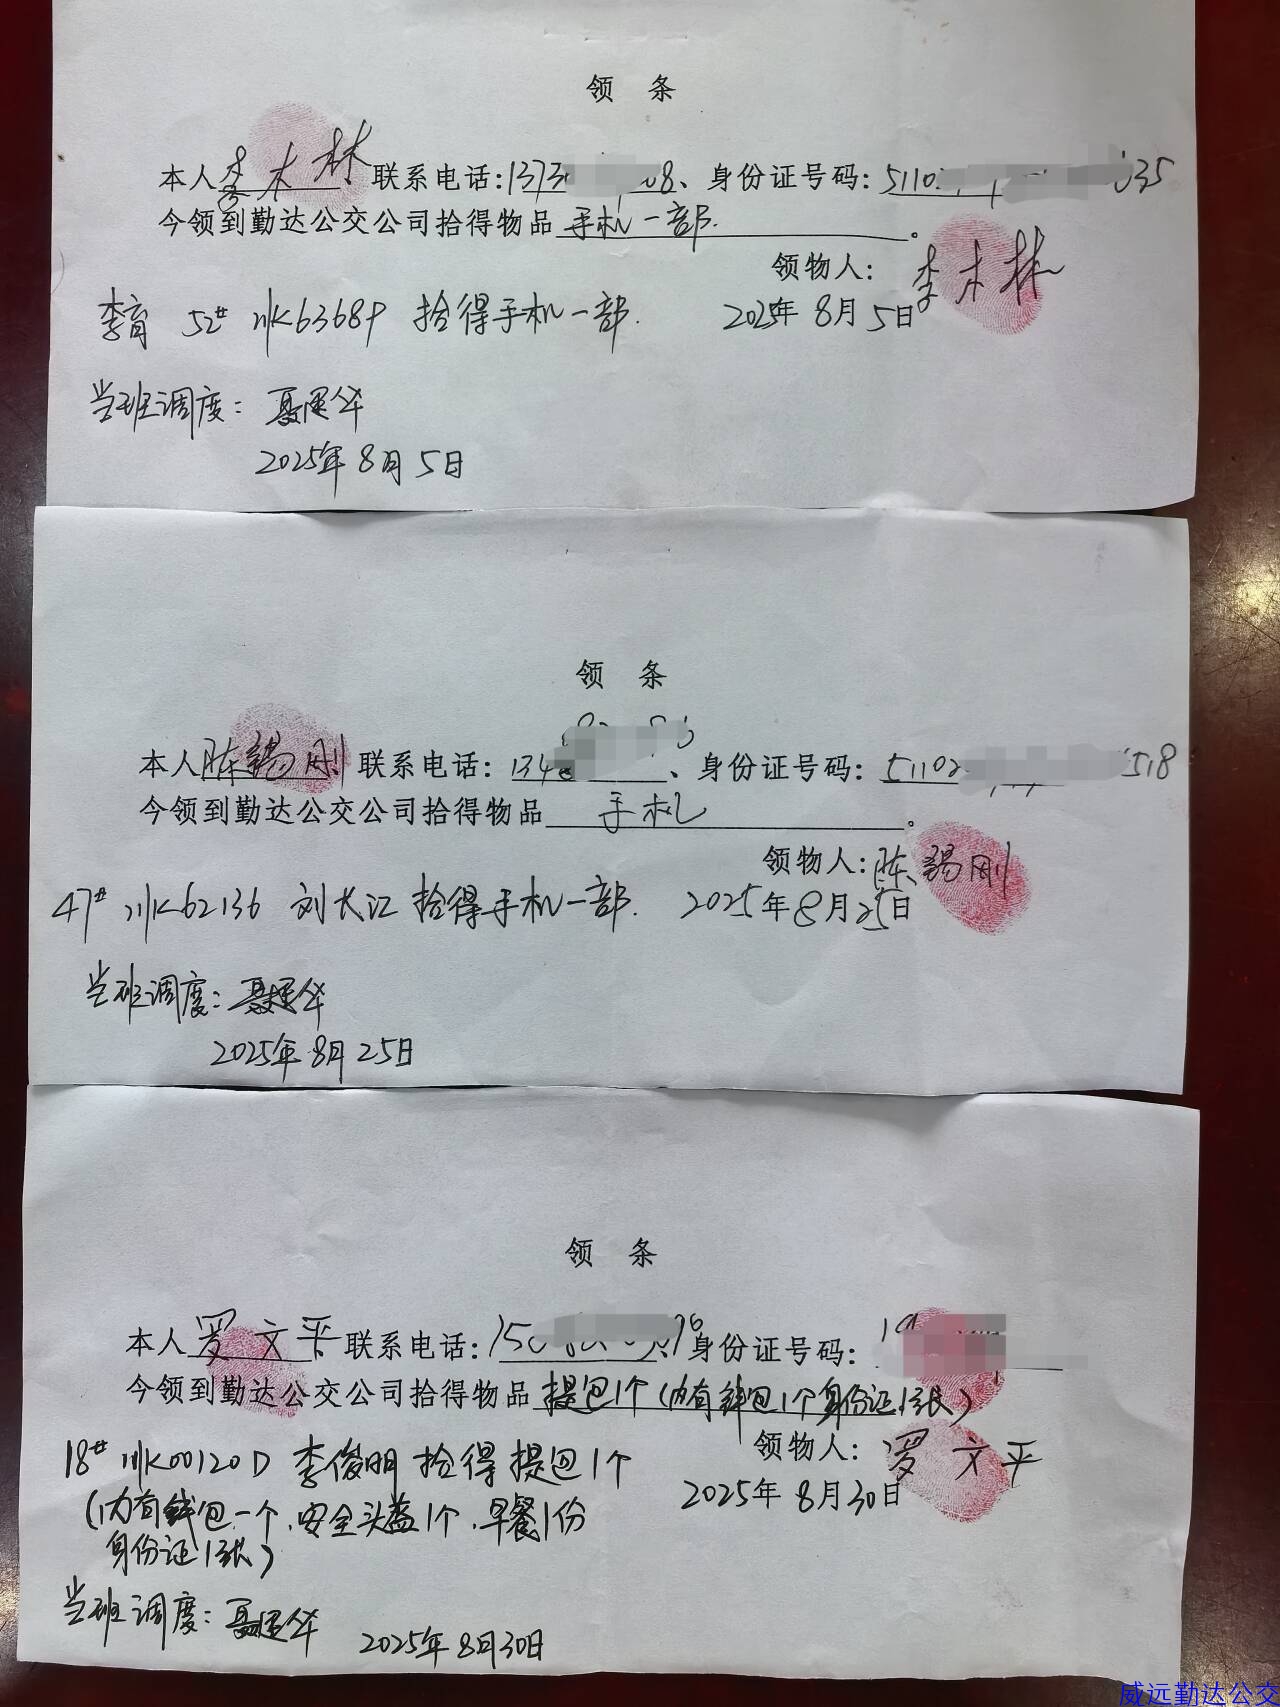 领 条
本人李木林联系电话:1373 08、身份证号码:5110 035
今领到勤达公交公司拾得物品手机一部.。
领物人: 李木林
李育 52# 川K6368P 拾得手机一部. 2025年8月5日
当班调度: 聂建华
2025年8月5日
领 条
本人陈锡刚联系电话:134 、身份证号码:51102 518
今领到勤达公交公司拾得物品 手机。
领物人:陈锡刚
47# 川K62136 刘长江 拾得手机一部. 2025年8月25日
当班调度:聂建华
2025年8月25日
领 条
本人罗文平联系电话:150 身份证号码:
今领到勤达公交公司拾得物品提包1个(内有钱包1个身份证1张)
领物人: 罗文平
18# 川K00120D 李俊明 拾得提包1个 2025年8月30日
(内有钱包一个、安全头盔1个、早餐1份
身份证1张)
当班调度:聂建华 2025年8月30日
威远勤达公交